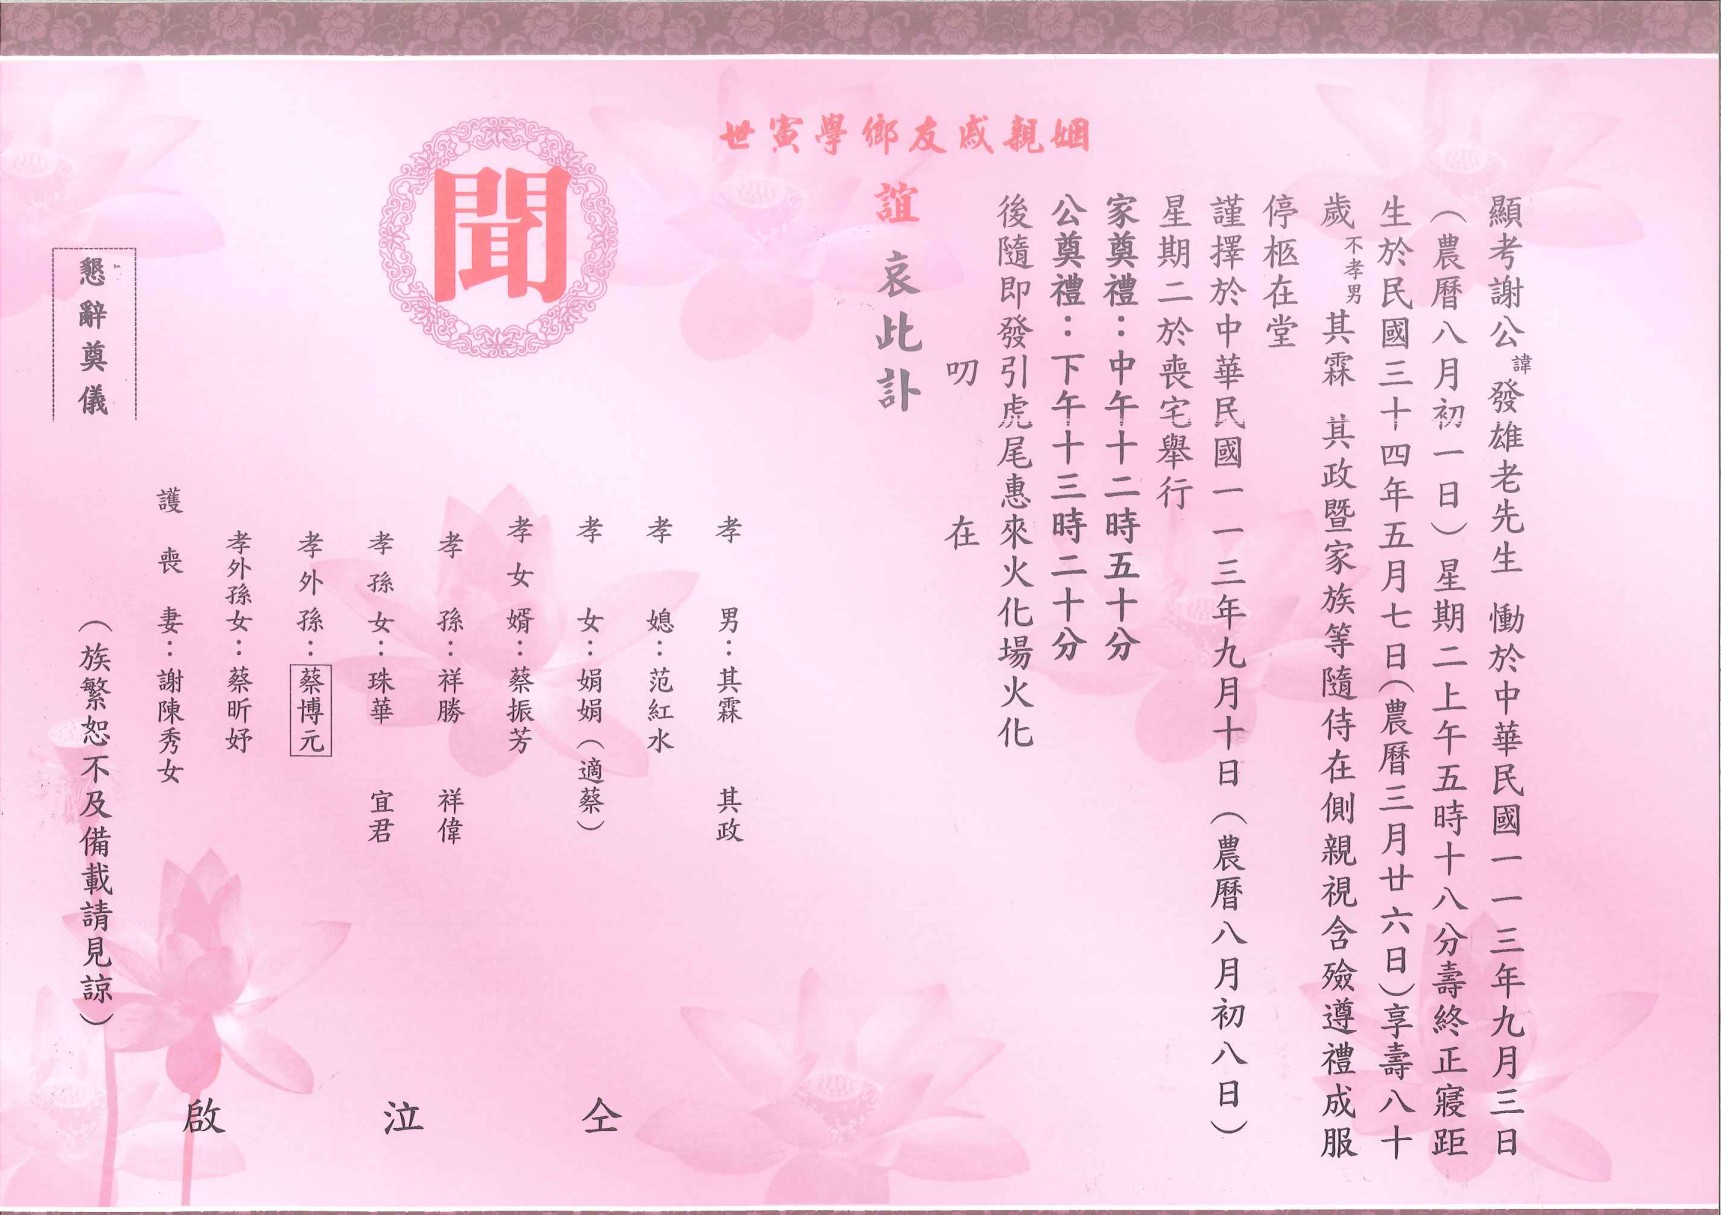 顯考謝公諱發雄老先生 慟於中華民國一一三年九月三日
（農曆八月初一日）星期二上午五時十八分壽終正寢距
生於民國三十四年五月七日（農曆三月廿六日）享壽八十
歲 不孝男 其霖 其政暨家族等隨侍在側親視含殮遵禮成服
停柩在堂
謹擇於中華民國一一三年九月十日（農曆八月初八日）
星期二於喪宅舉行
家奠禮：中午十二時五十分
公奠禮：下午十三時二十分
後隨即發引虎尾惠來火化場火化
叨 在
姻親戚友鄉學寅世
誼 哀此訃
聞
孝男：其霖 其政
孝媳：范紅水
孝女：娟娟（適蔡）
孝女婿：蔡振芳
孝孫：祥勝 祥偉
孝孫女：珠華 宜君
孝外孫：蔡博元
孝外孫女：蔡昕妤
護喪妻：謝陳秀女
仝 泣 啟
（族繁恕不及備載請見諒）
懇辭奠儀